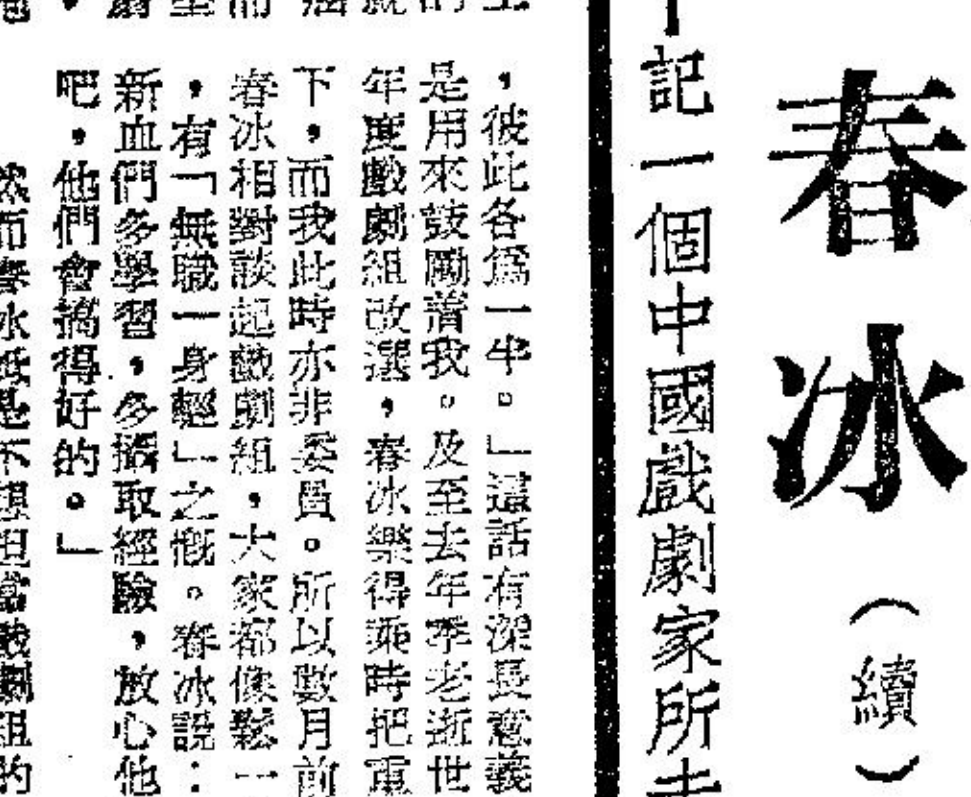 春冰（續）
記一個中國戲劇家所走
，彼此各爲一半。」這話有深長意義
是用來鼓勵着我。及至去年李老逝世
年度戲劇組改選，春冰樂得乘時把重
下，而我此時亦非委員。所以數月前
春冰相對談起戲劇組，大家都像鬆一
，有「無職一身輕」之慨。春冰説：
新血們多學習，多攝取經驗，放心他
吧，他們會搞得好的。」
然而春冰祇是不想担當戲劇組的